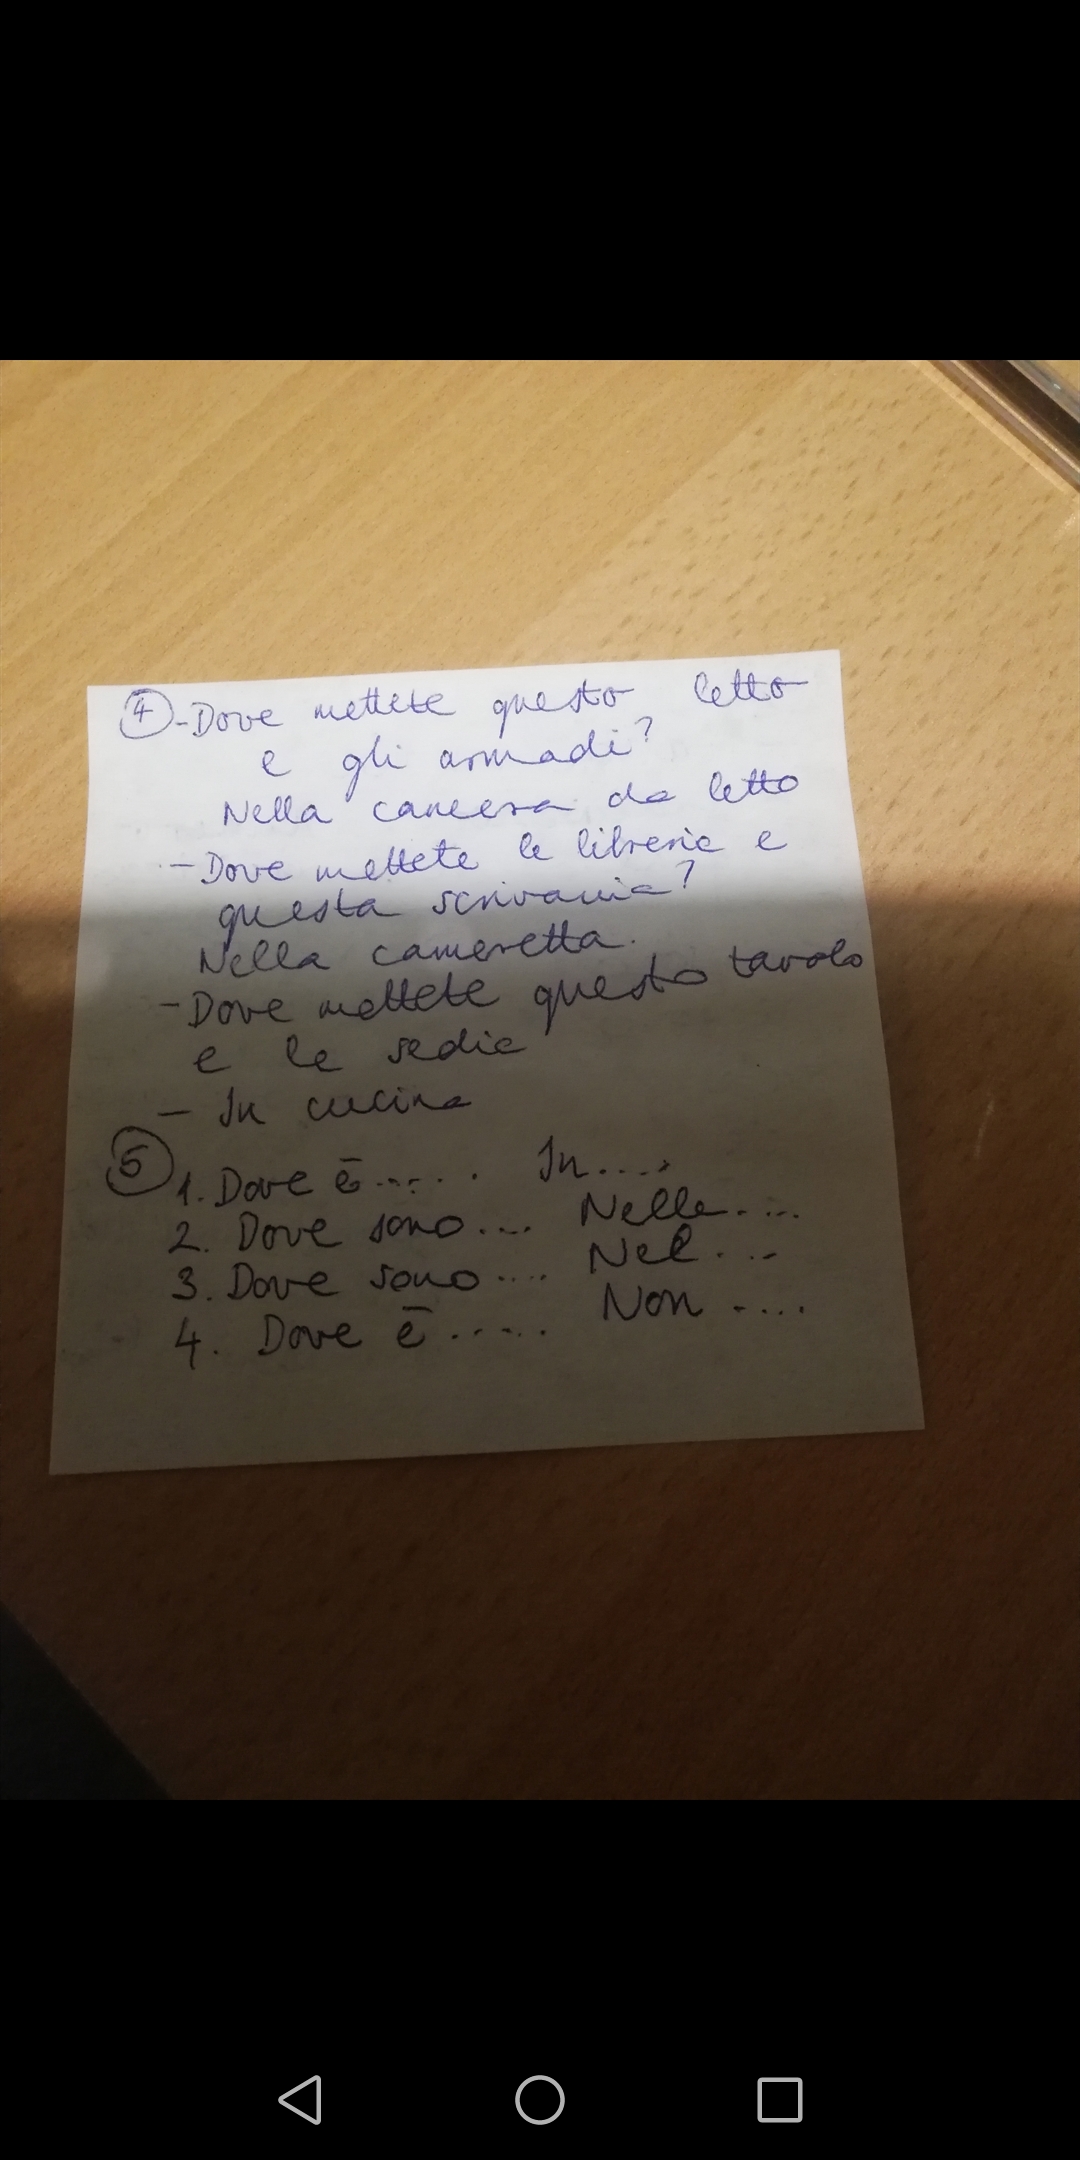 4 - Dove mettete questo letto
e gli armadi?
Nella camera da letto
- Dove mettete la libreria e
questa scrivania?
Nella cameretta.
- Dove mettete questo tavolo
e le sedie
- In cucina
5 1. Dove ē..... In....
2. Dove sono.... Nella....
3. Dove sono.... Nel....
4. Dove ē..... Non ....